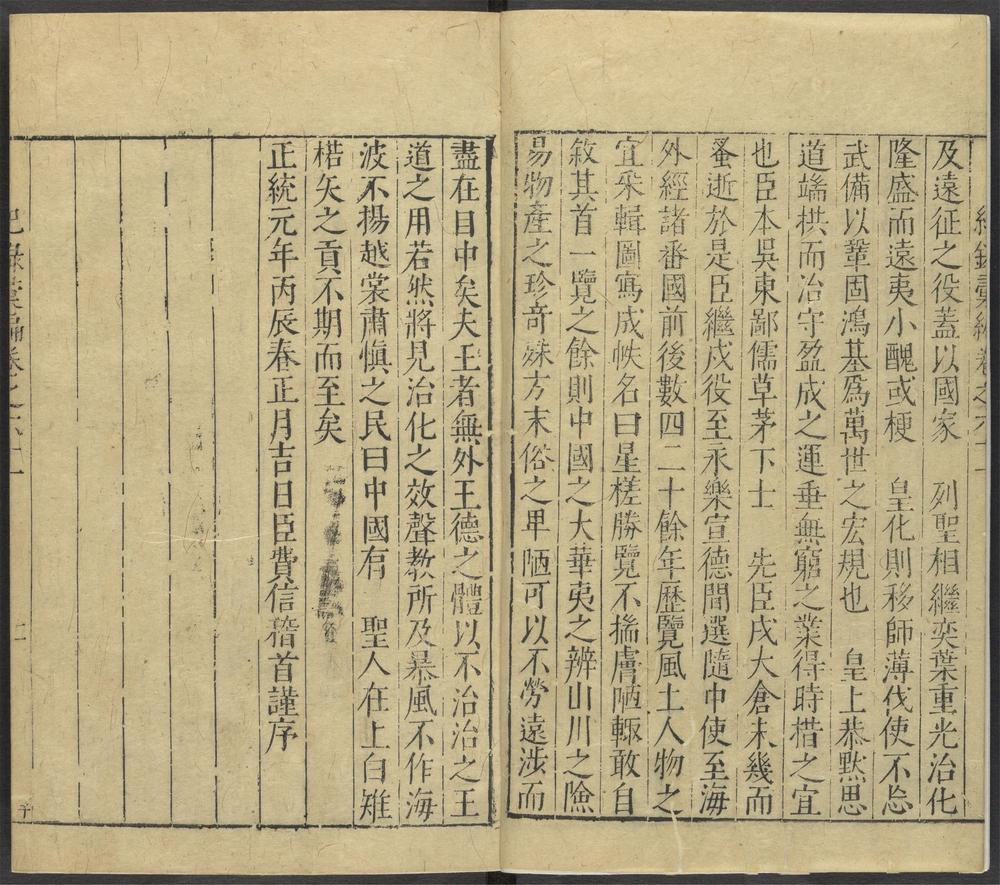 紀錄彙編卷之六十一
及遠征之役蓋以國家　列聖相繼奕葉重光治化
隆盛而遠夷小醜或梗　皇化則移師薄伐使不忘
武備以鞏固鴻基爲萬世之宏規也　皇上恭默思
道端拱而治守盈成之運垂無窮之業得時措之宜
也臣本吳東鄙儒草茅下士　先臣戍大倉未幾而
蚤逝於是臣繼戍役至永樂宣德間選隨中使至海
外經諸番國前後數四二十餘年歷覽風土人物之
宜采輯圖寫成帙名曰星槎勝覽不揣膚陋輙敢自
敘其首一覽之餘則中國之大華夷之辨山川之險
昜物產之珍奇殊方末俗之卑陋可以不勞遠涉而
盡在目中矣夫王者無外王德之體以不治治之王
道之用若然將見治化之效聲教所及暴風不作海
波不揚越裳肅愼之民曰中國有　聖人在上白雉
楛矢之貢不期而至矣
正統元年丙辰春正月吉日臣費信稽首謹序
紀錄彙編卷之六十一
二